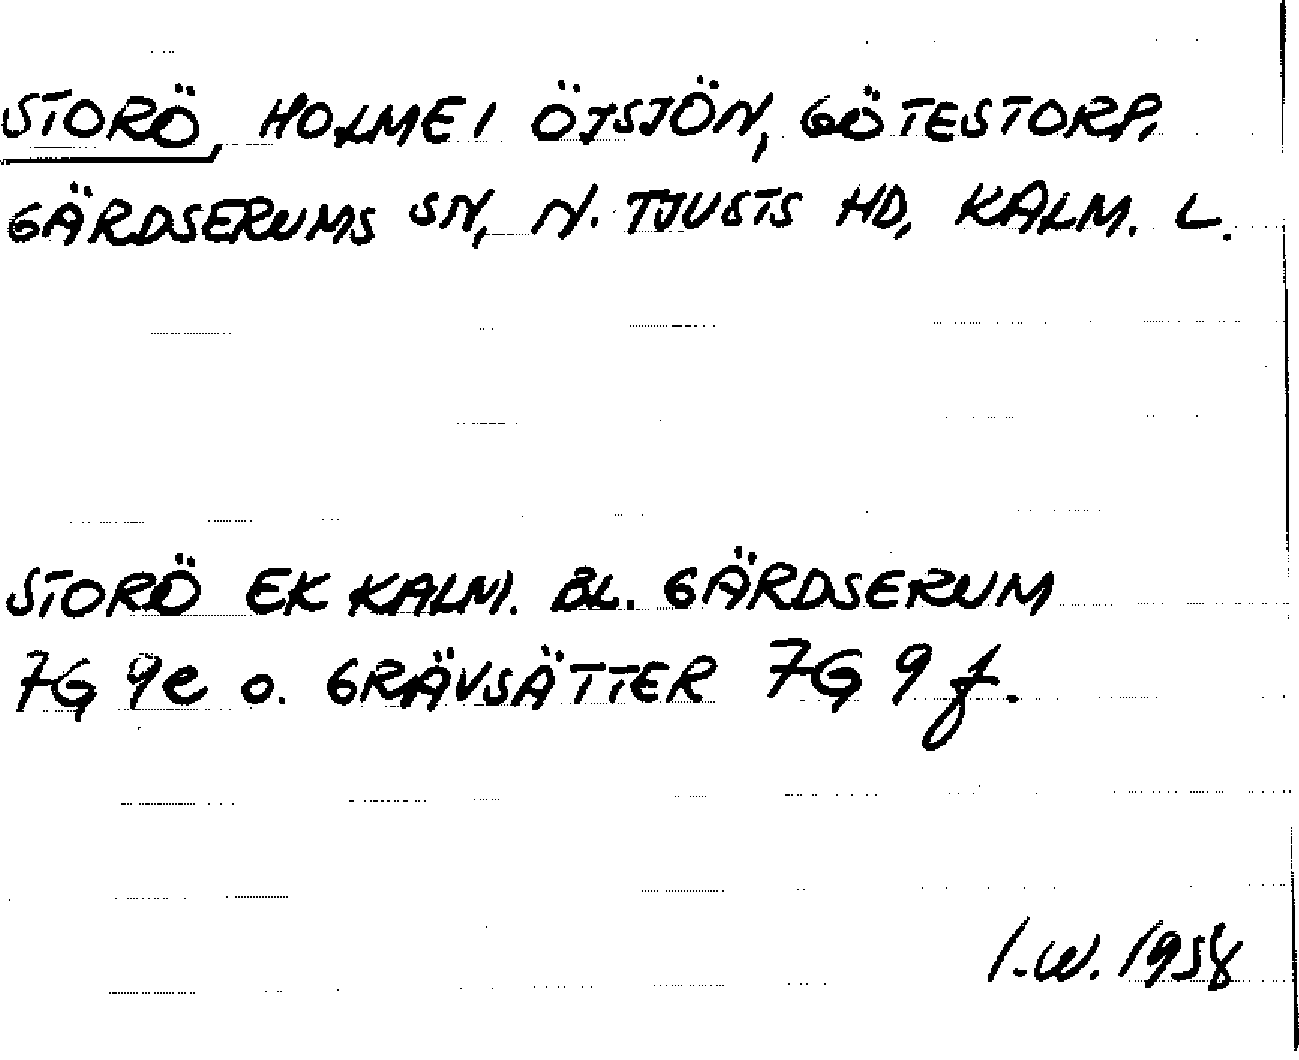 STORÖ, HOLME I ÖJSJÖN, GÖTESTORP,
GÄRDSERUMS SN, N. TJUSTS HD, KALM. L.
STORÖ EK KALM. BL. GÄRDSERUM
7G 9e o. GRÄVSÄTTER 7G 9f.
I.W. 1958